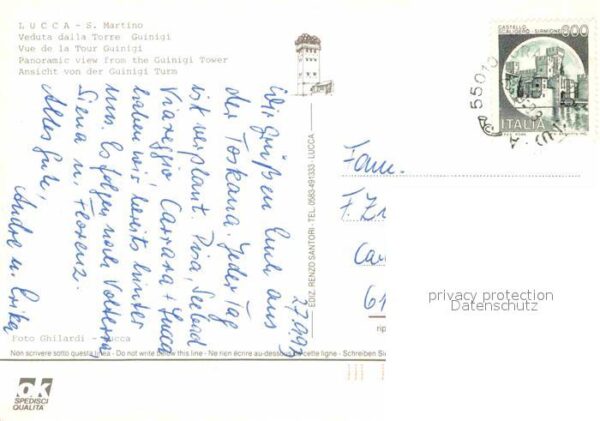 LUCCA - S. Martino
Veduta dalla Torre Guinigi
Vue de la Tour Guinigi
Panoramic view from the Guinigi Tower
Ansicht von der Guinigi Turm
27.9.93
Wir grüßen Euch aus
der Toskana. Jeder Tag
ist verplant. Pisa, Seebad
Viareggio, Carrara + Lucca
haben wir bereits hinter
uns. Es folgen noch Volterra,
Siena u. Florenz.
Alles Gute,
Andre u. Erika
Foto Ghilardi - Lucca
Non scrivere sotto questa linea - Do not write below this line - Ne rien écrire au-dessous de cette ligne - Schreiben Sie
OK
SPEDISCI
QUALITÀ
EDIZ. RENZO SANTORI - TEL. 0583-491333 - LUCCA
CASTELLO
SCALIGERO - SIRMIONE
600
ITALIA
55010
Fam.
F.
Ca
61
rip
privacy protection
Datenschutz